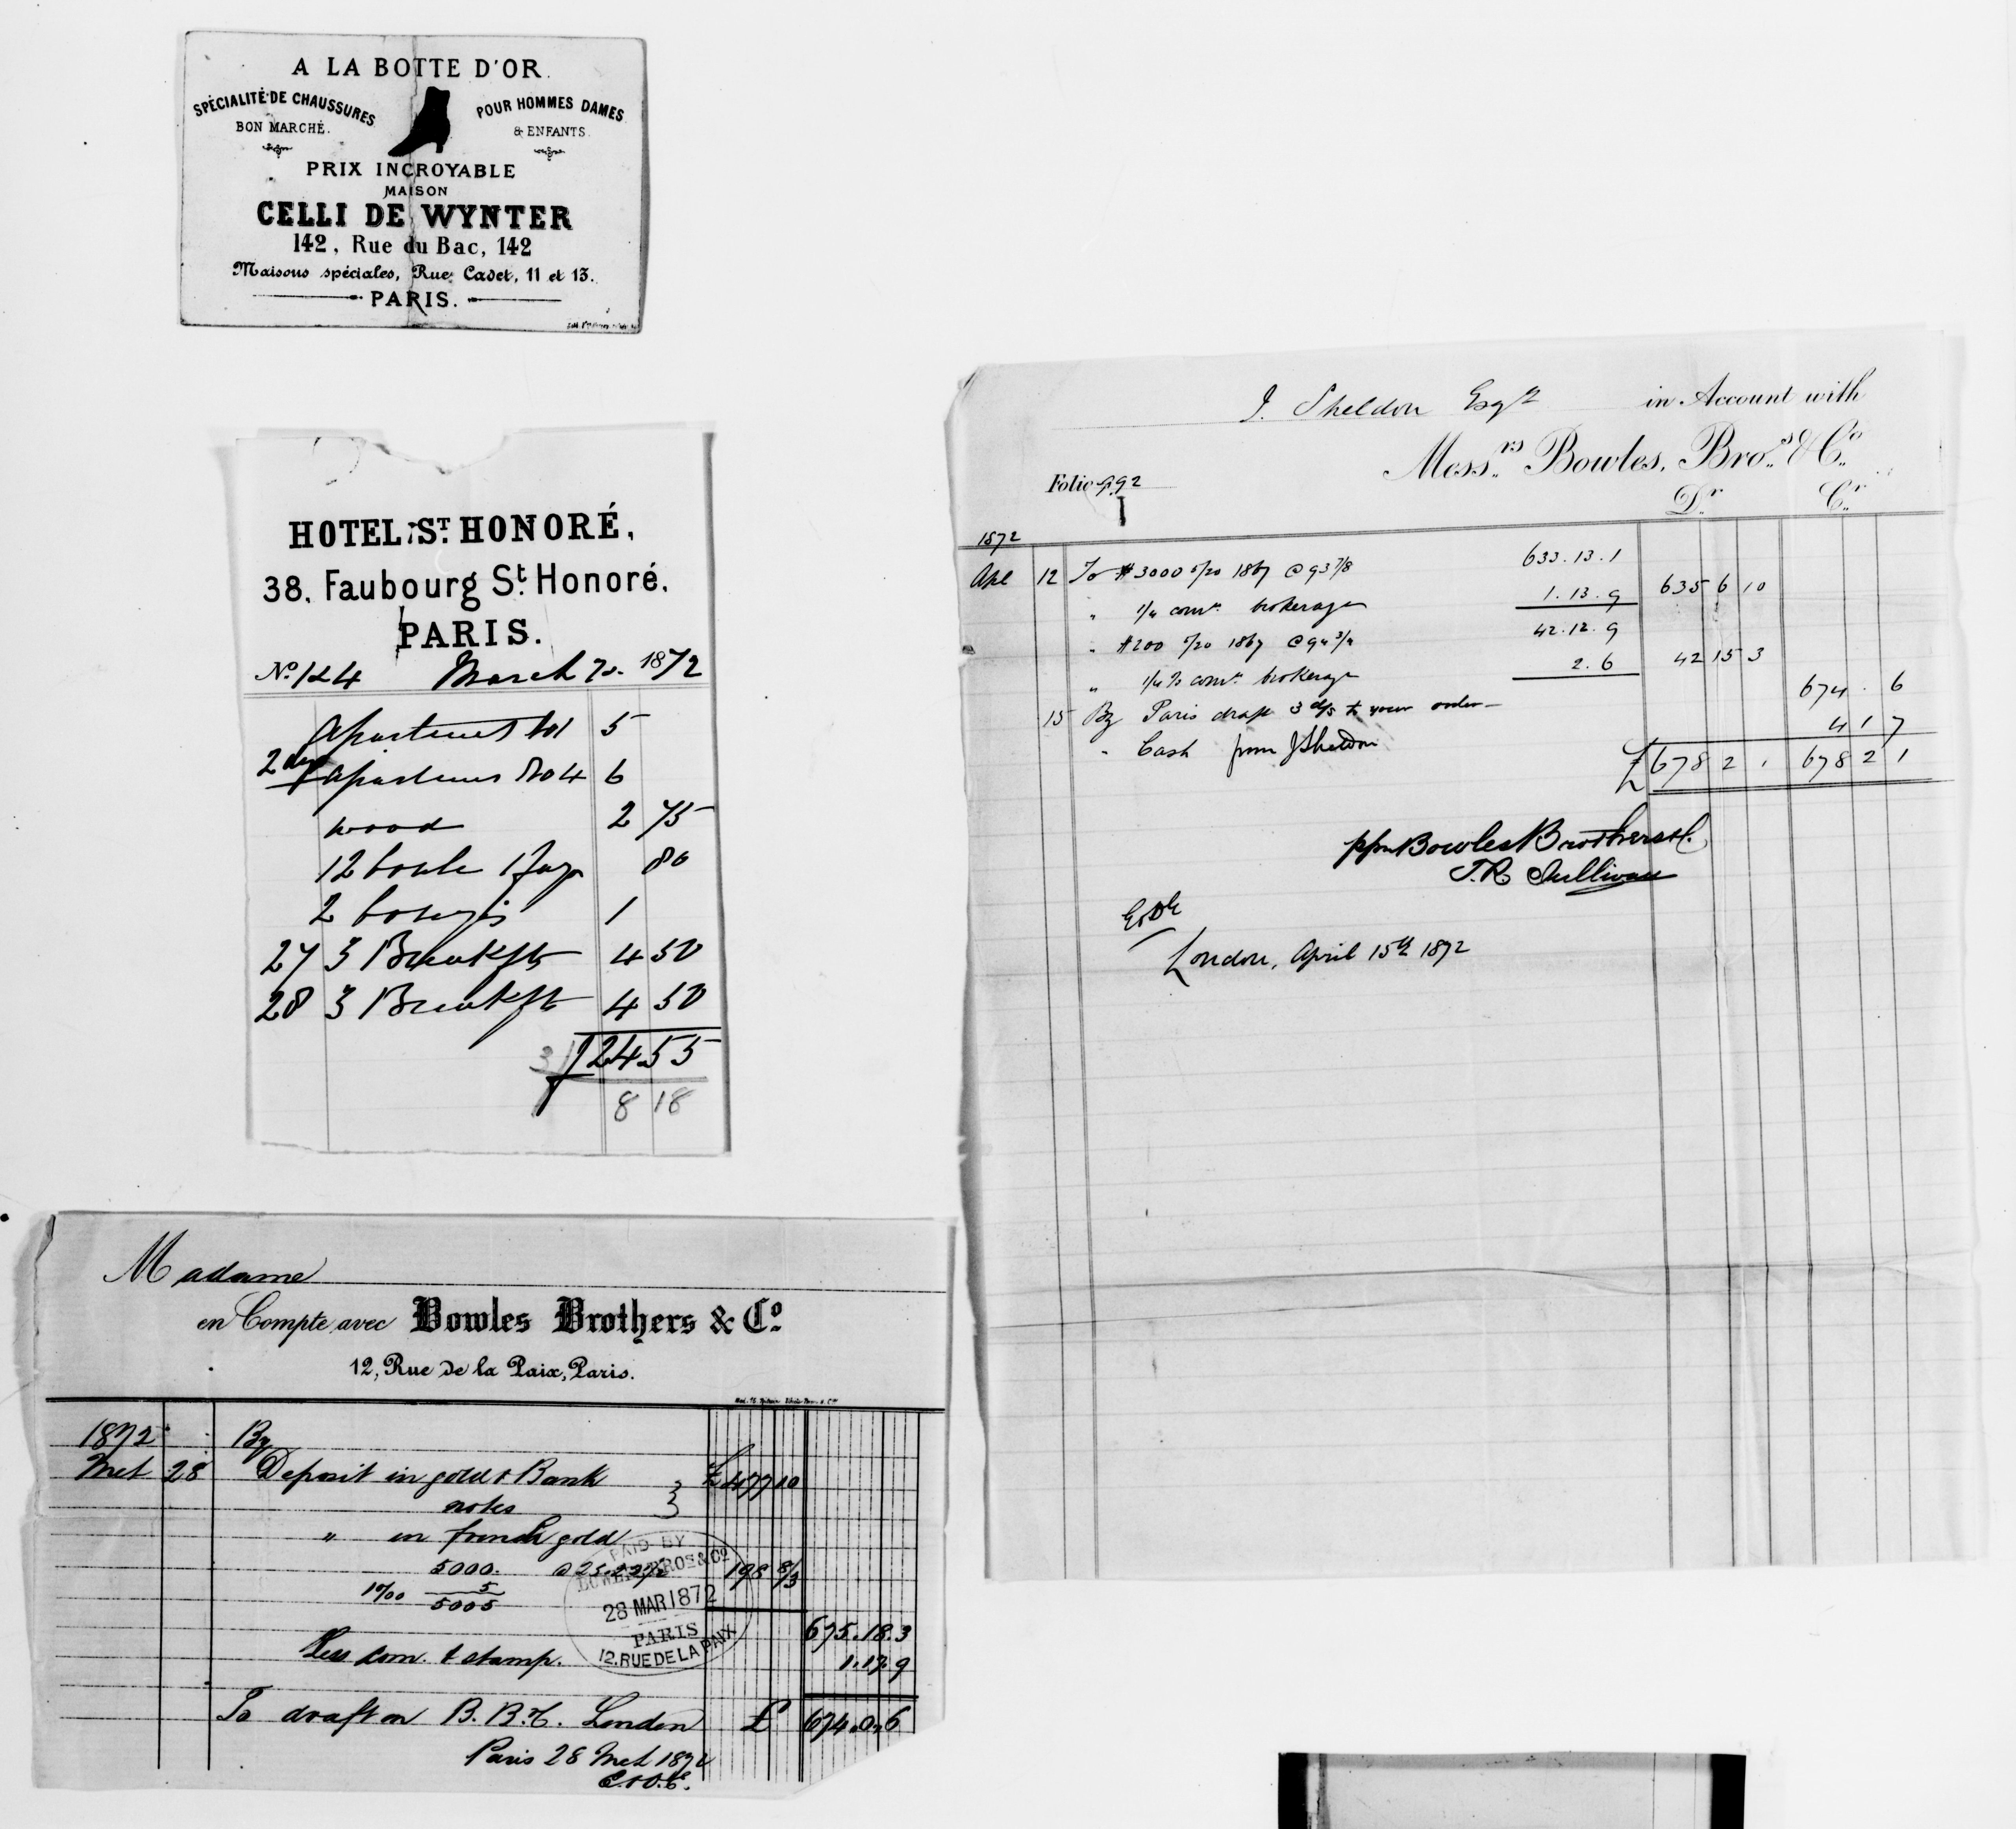 A LA BOTTE D'OR.
SPÉCIALITÉ DE CHAUSSURES
BON MARCHÉ.
POUR HOMMES DAMES
& ENFANTS.
PRIX INCROYABLE
MAISON
CELLI DE WYNTER
142, Rue du Bac, 142
Maisons spéciales, Rue Cadet, 11 et 13.
PARIS.
HOTEL ST. HONORÉ,
38, Faubourg St. Honoré,
PARIS.
No. 144 March 1872
Apartment No 1 5
2 day Apartment No 4 6
wood 2 75
12 80
2 1
27 3 Breakfts 4 50
28 3 Breakfts 4 50
24 55
8 18
Madame
en Compte avec Bowles Brothers & Co.
12, Rue de la Paix, Paris.
1872 By
Mch 28 Deposit in gold & Bank £477 10
notes
" in french gold
5000. @ 25.22½ 198 8/3
1‰ 5
5005
PAID BY
BOWLES BROS & CO
28 MAR 1872
PARIS
12. RUE DE LA PAIX
675.18.3
Less com. & stamp. 1.17.9
To draft on B. B. & C. London £ 674.0.6
Paris 28 Mch 1872
E. & O. E.
J. Sheldon Esqr in Account with
Messrs. Bowles, Bros. & Co.
Folio 992
Dr. Cr.
1872
Apl 12 To $3000 5/20 1867 @ 93 7/8 633.13.1
" 1/4 comn. brokerage 1.13.9 635 6 10
" $200 5/20 1867 @ 94 3/4 42.12.9
" 1/4 % comn. brokerage 2.6 42 15 3
15 By Paris draft 3 d/s to your order 674 . 6
" Cash from J Sheldon 4 1 7
£ 678 2 1 678 2 1
ppn Bowles Brothers & C.
T. R. Sullivan
E & O E
London, April 15th 1872